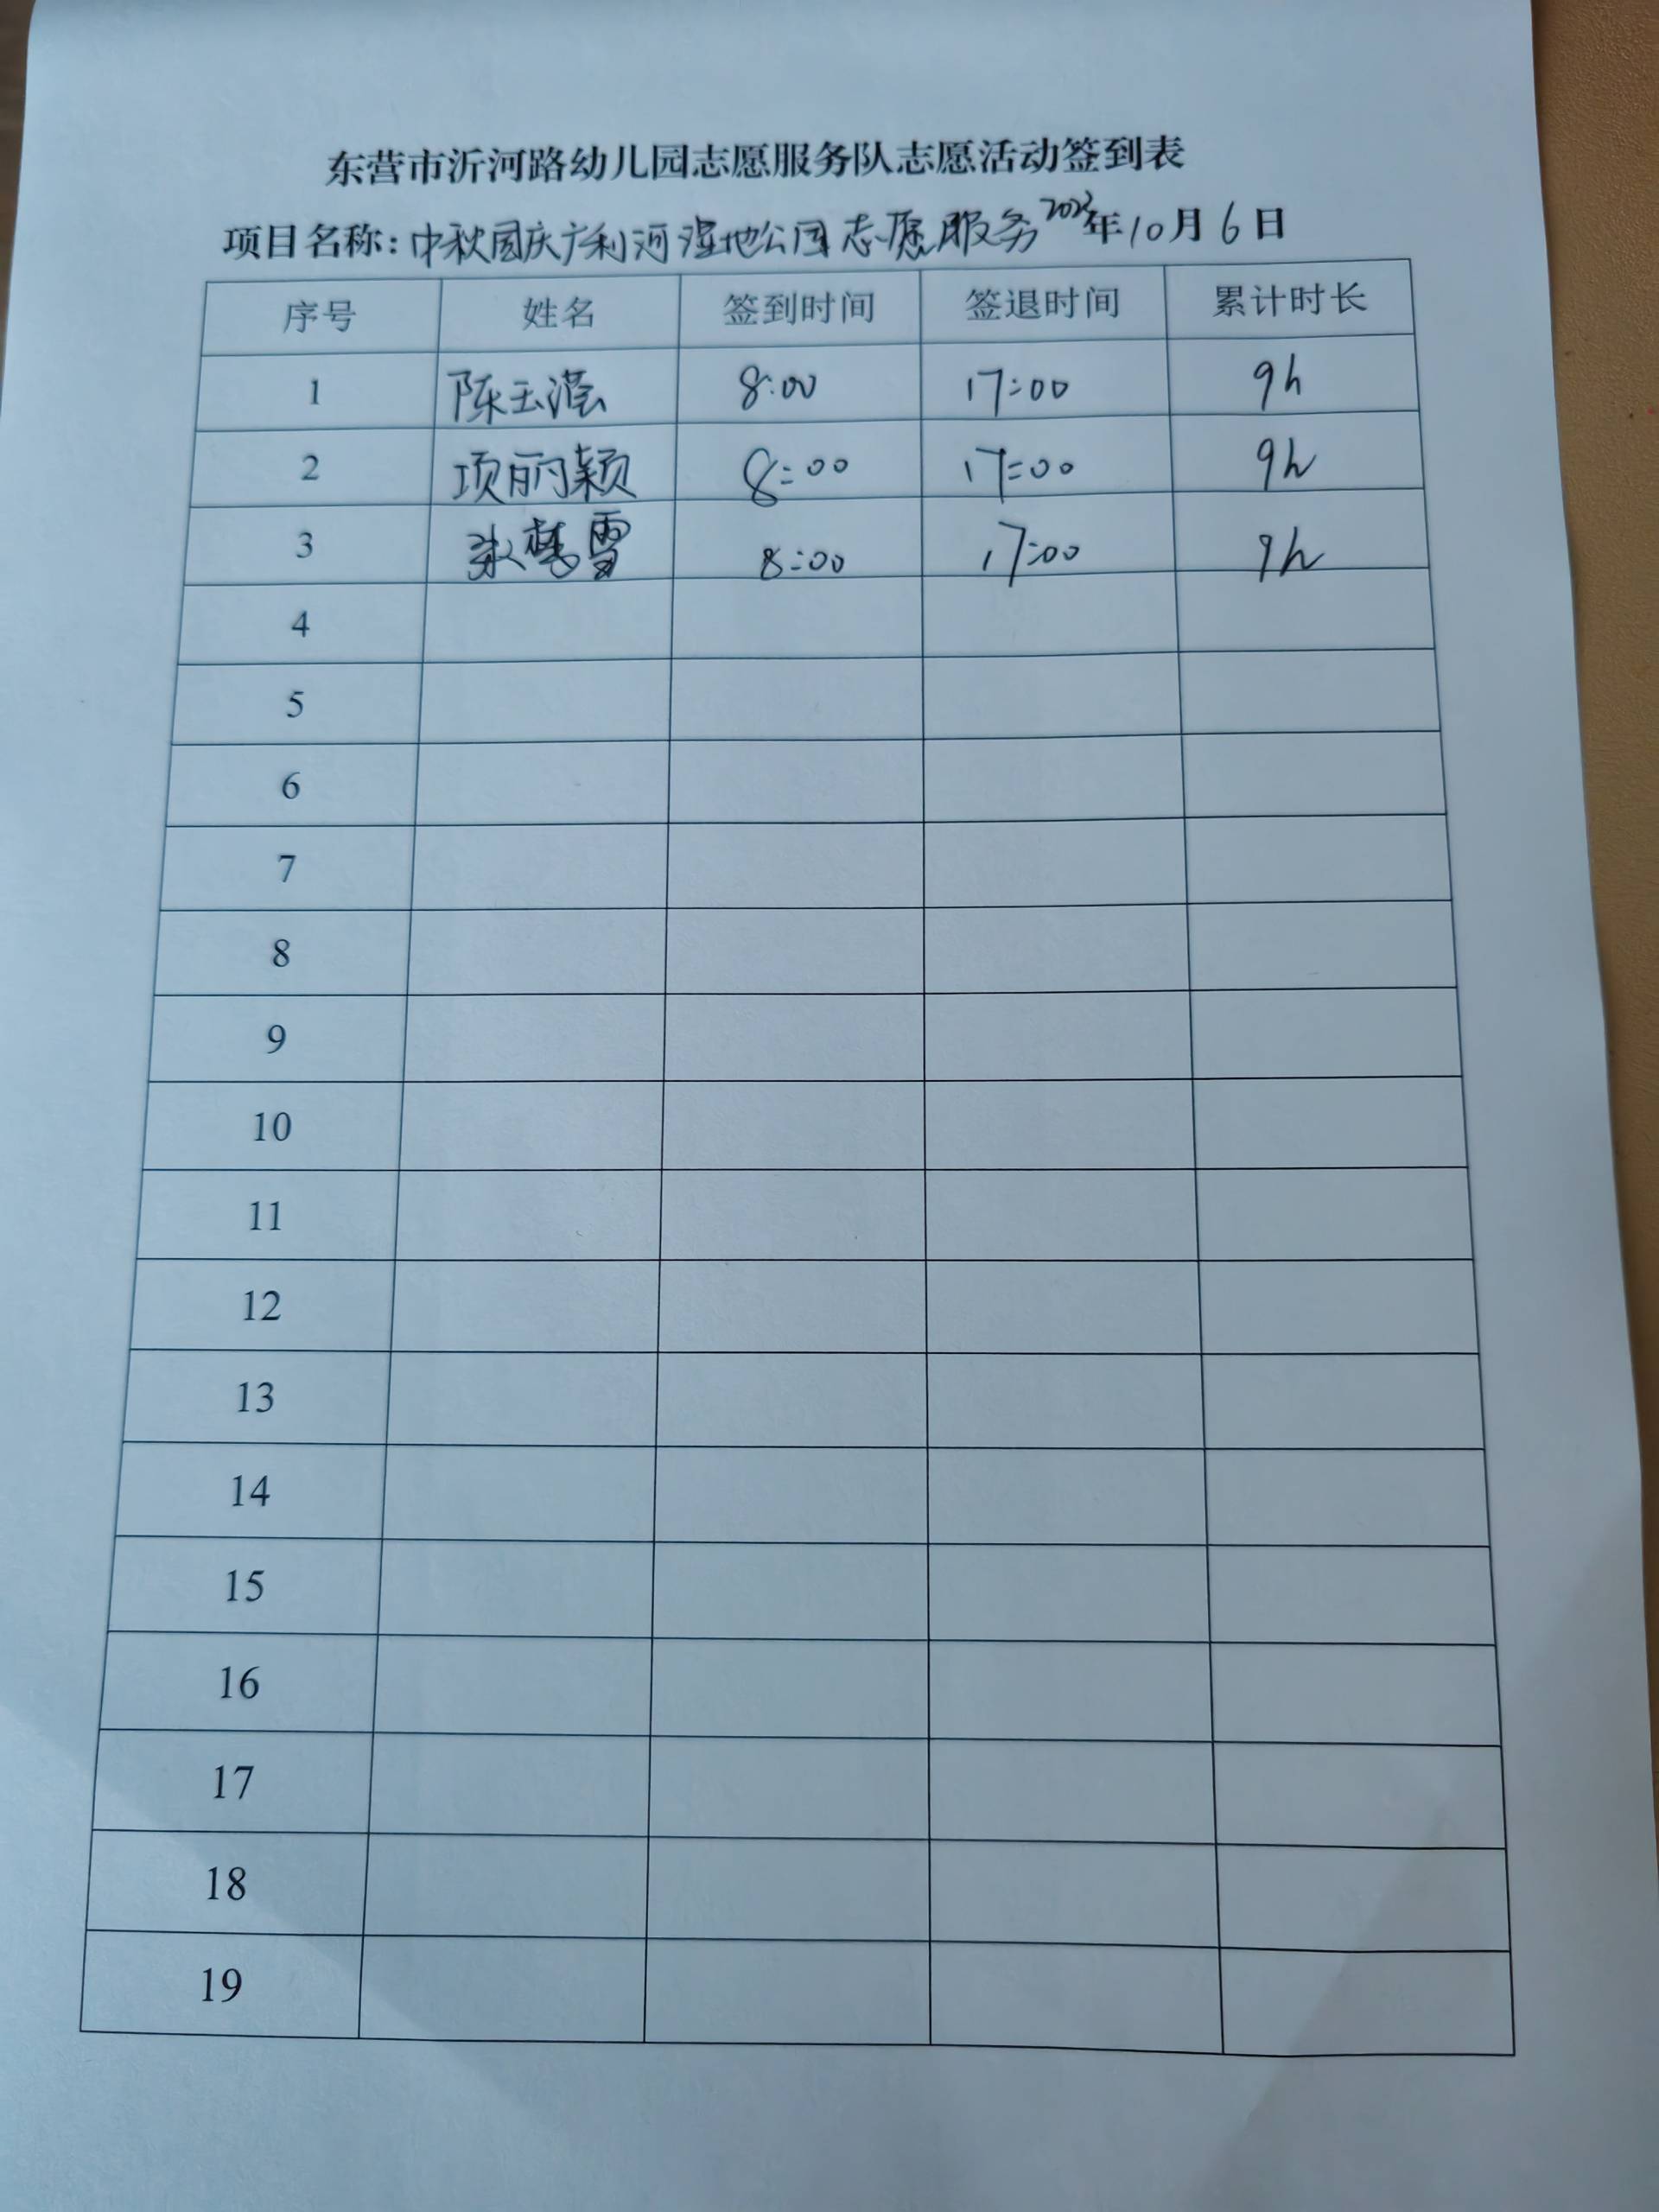 东营市沂河路幼儿园志愿服务队志愿活动签到表
项目名称:中秋国庆广利河湿地公园志愿服务2023年10月6日
序号 姓名 签到时间 签退时间 累计时长
1 陈玉滢 8:00 17:00 9h
2 项丽颖 8:00 17:00 9h
3 8:00 17:00 9h
4
5
6
7
8
9
10
11
12
13
14
15
16
17
18
19